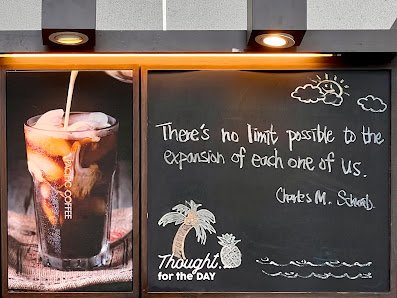 There's no limit possible to the
expansion of each one of us.
Charles M. Schwab
Thought
for the DAY
PACIFIC COFFEE